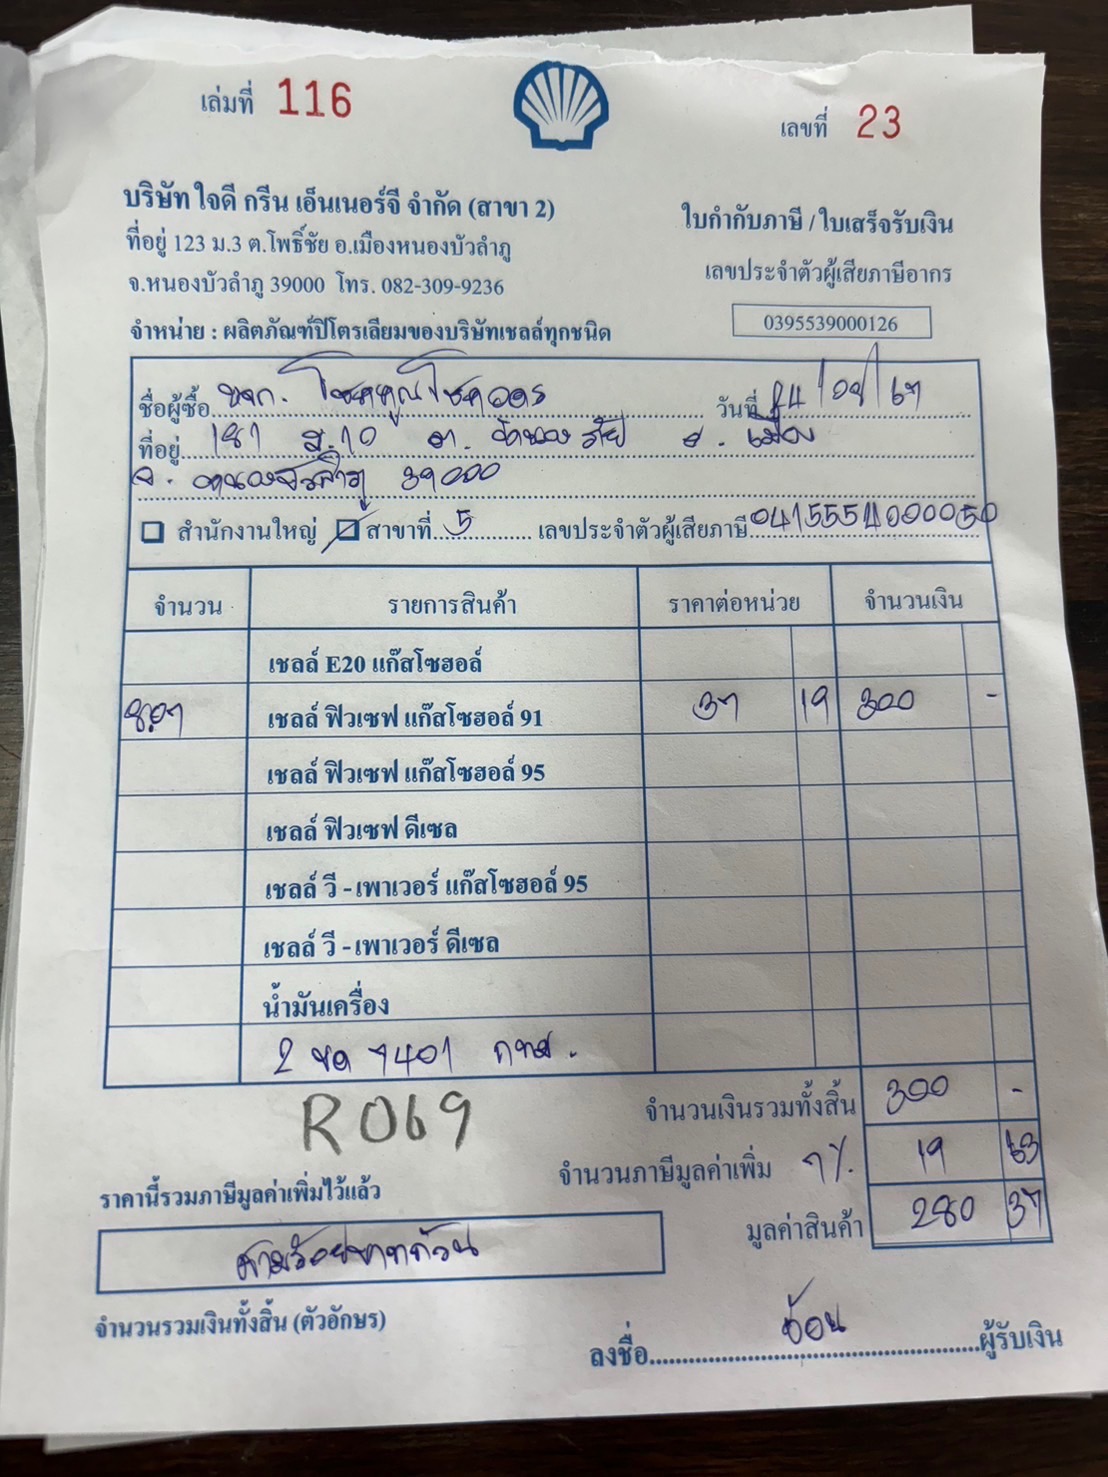 เล่มที่ 116
เลขที่ 23
บริษัท ใจดี กรีน เอ็นเนอร์จี จำกัด (สาขา 2)
ใบกำกับภาษี / ใบเสร็จรับเงิน
ที่อยู่ 123 ม.3 ต.โพธิ์ชัย อ.เมืองหนองบัวลำภู
เลขประจำตัวผู้เสียภาษีอากร
จ.หนองบัวลำภู 39000 โทร. 082-309-9236
0395539000126
จำหน่าย : ผลิตภัณฑ์ปิโตรเลียมของบริษัทเชลล์ทุกชนิด
ชื่อผู้ซื้อ หจก. โชคคูณโชคถาวร วันที่ 24/ /67
ที่อยู่ 181 ม.10 ต. อ. เมือง
จ. หนองบัวลำภู 39000
สำนักงานใหญ่ สาขาที่ 5 เลขประจำตัวผู้เสียภาษี 0415554000050
จำนวน รายการสินค้า ราคาต่อหน่วย จำนวนเงิน
เชลล์ E20 แก๊สโซฮอล์
8.07 เชลล์ ฟิวเซฟ แก๊สโซฮอล์ 91 37 19 300 -
เชลล์ ฟิวเซฟ แก๊สโซฮอล์ 95
เชลล์ ฟิวเซฟ ดีเซล
เชลล์ วี - เพาเวอร์ แก๊สโซฮอล์ 95
เชลล์ วี - เพาเวอร์ ดีเซล
น้ำมันเครื่อง
2 ขด 7401 กทม.
R069
จำนวนเงินรวมทั้งสิ้น 300 -
จำนวนภาษีมูลค่าเพิ่ม 7% 19 63
ราคานี้รวมภาษีมูลค่าเพิ่มไว้แล้ว
มูลค่าสินค้า 280 37
สามร้อยบาทถ้วน
จำนวนรวมเงินทั้งสิ้น (ตัวอักษร)
ลงชื่อ ผู้รับเงิน